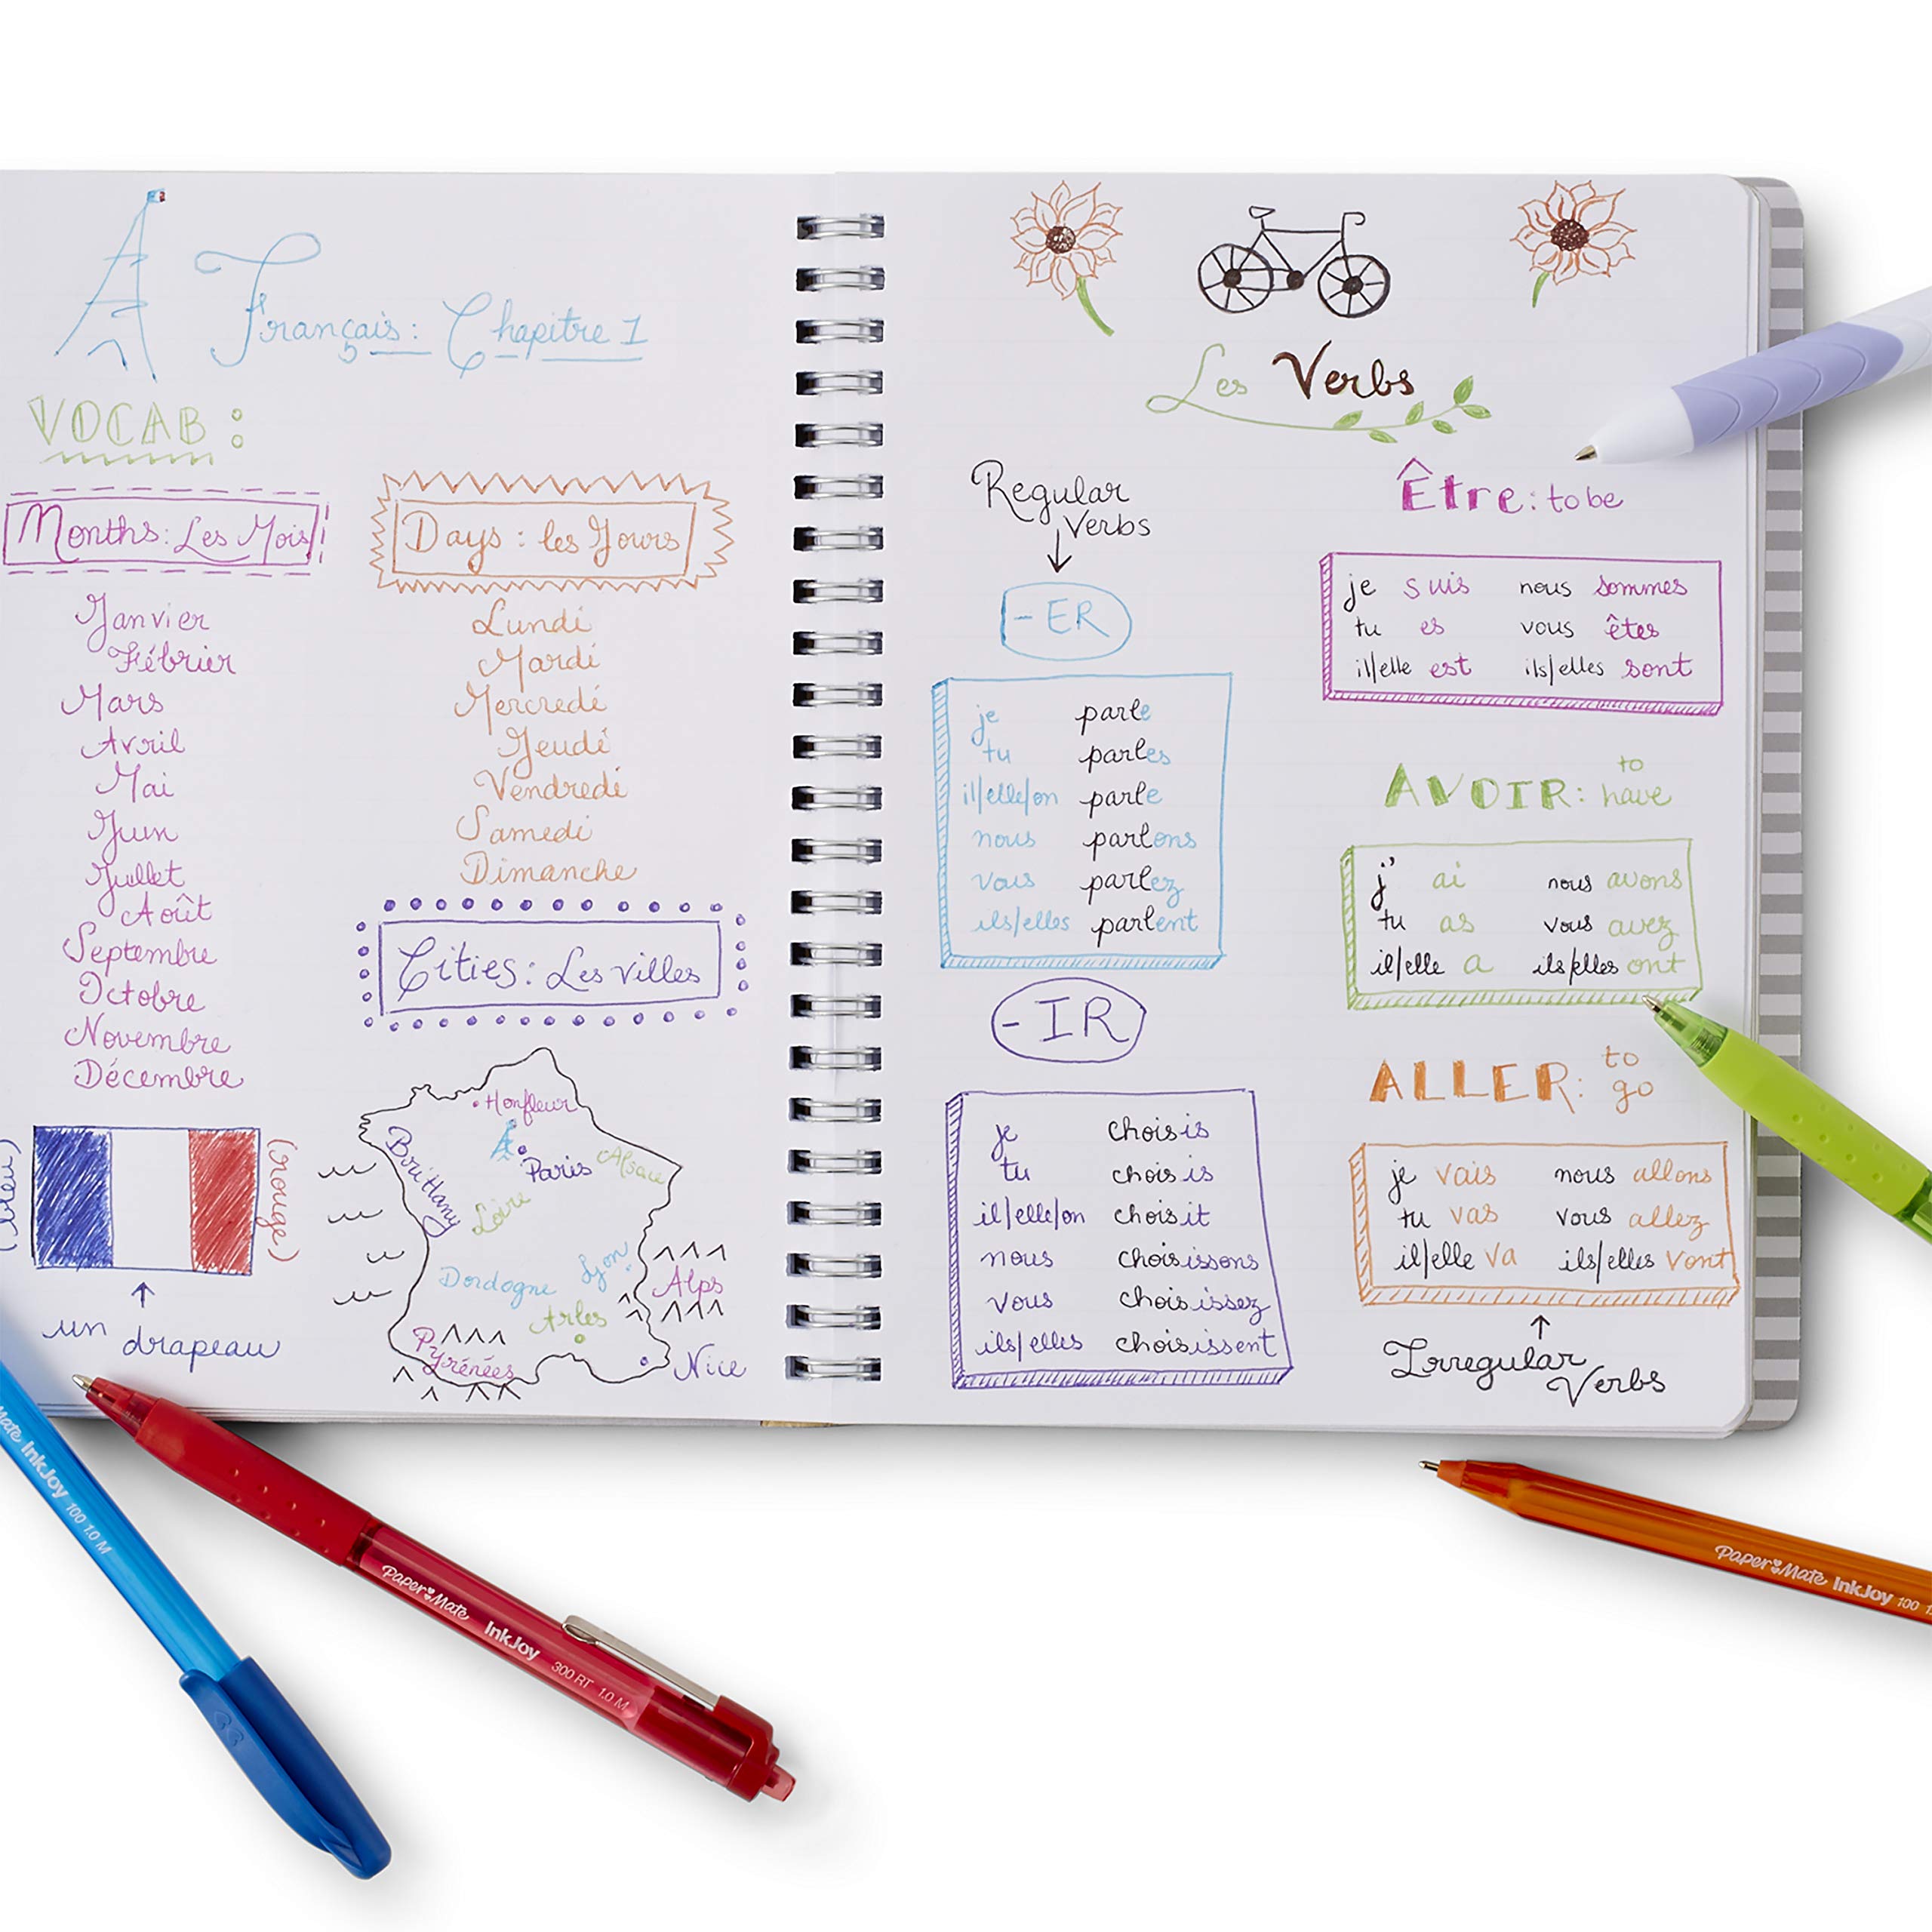 Français: Chapitre 1
VOCAB:
Months: Les Mois
Janvier
Fébrier
Mars
Avril
Mai
Juin
Jullet
Août
Septembre
Octobre
Novembre
Décembre
(bleu)
(rouge)
un drapeau
Days: les Jours
Lundi
Mardi
Mercredi
Jeudi
Vendredi
Samedi
Dimanche
Cities: Les villes
Honfleur
Paris
Alsace
Brittany
Loire
Dordogne
Lyon
Alps
Arles
Pyrénées
Nice
Les Verbs
Regular
Verbs
-ER
je parle
tu parles
il/elle/on parle
nous parlons
vous parlez
ils/elles parlent
-IR
je choisis
tu choisis
il/elle/on choisit
nous choisissons
vous choisissez
ils/elles choisissent
Être: to be
je suis nous sommes
tu es vous êtes
il/elle est ils/elles sont
AVOIR: to have
j' ai nous avons
tu as vous avez
il/elle a ils/elles ont
ALLER: to go
je vais nous allons
tu vas vous allez
il/elle va ils/elles vont
Irregular
Verbs
Mate InkJoy 100 1.0 M
Paper Mate InkJoy 300 RT 1.0 M
Paper Mate InkJoy 100 1.